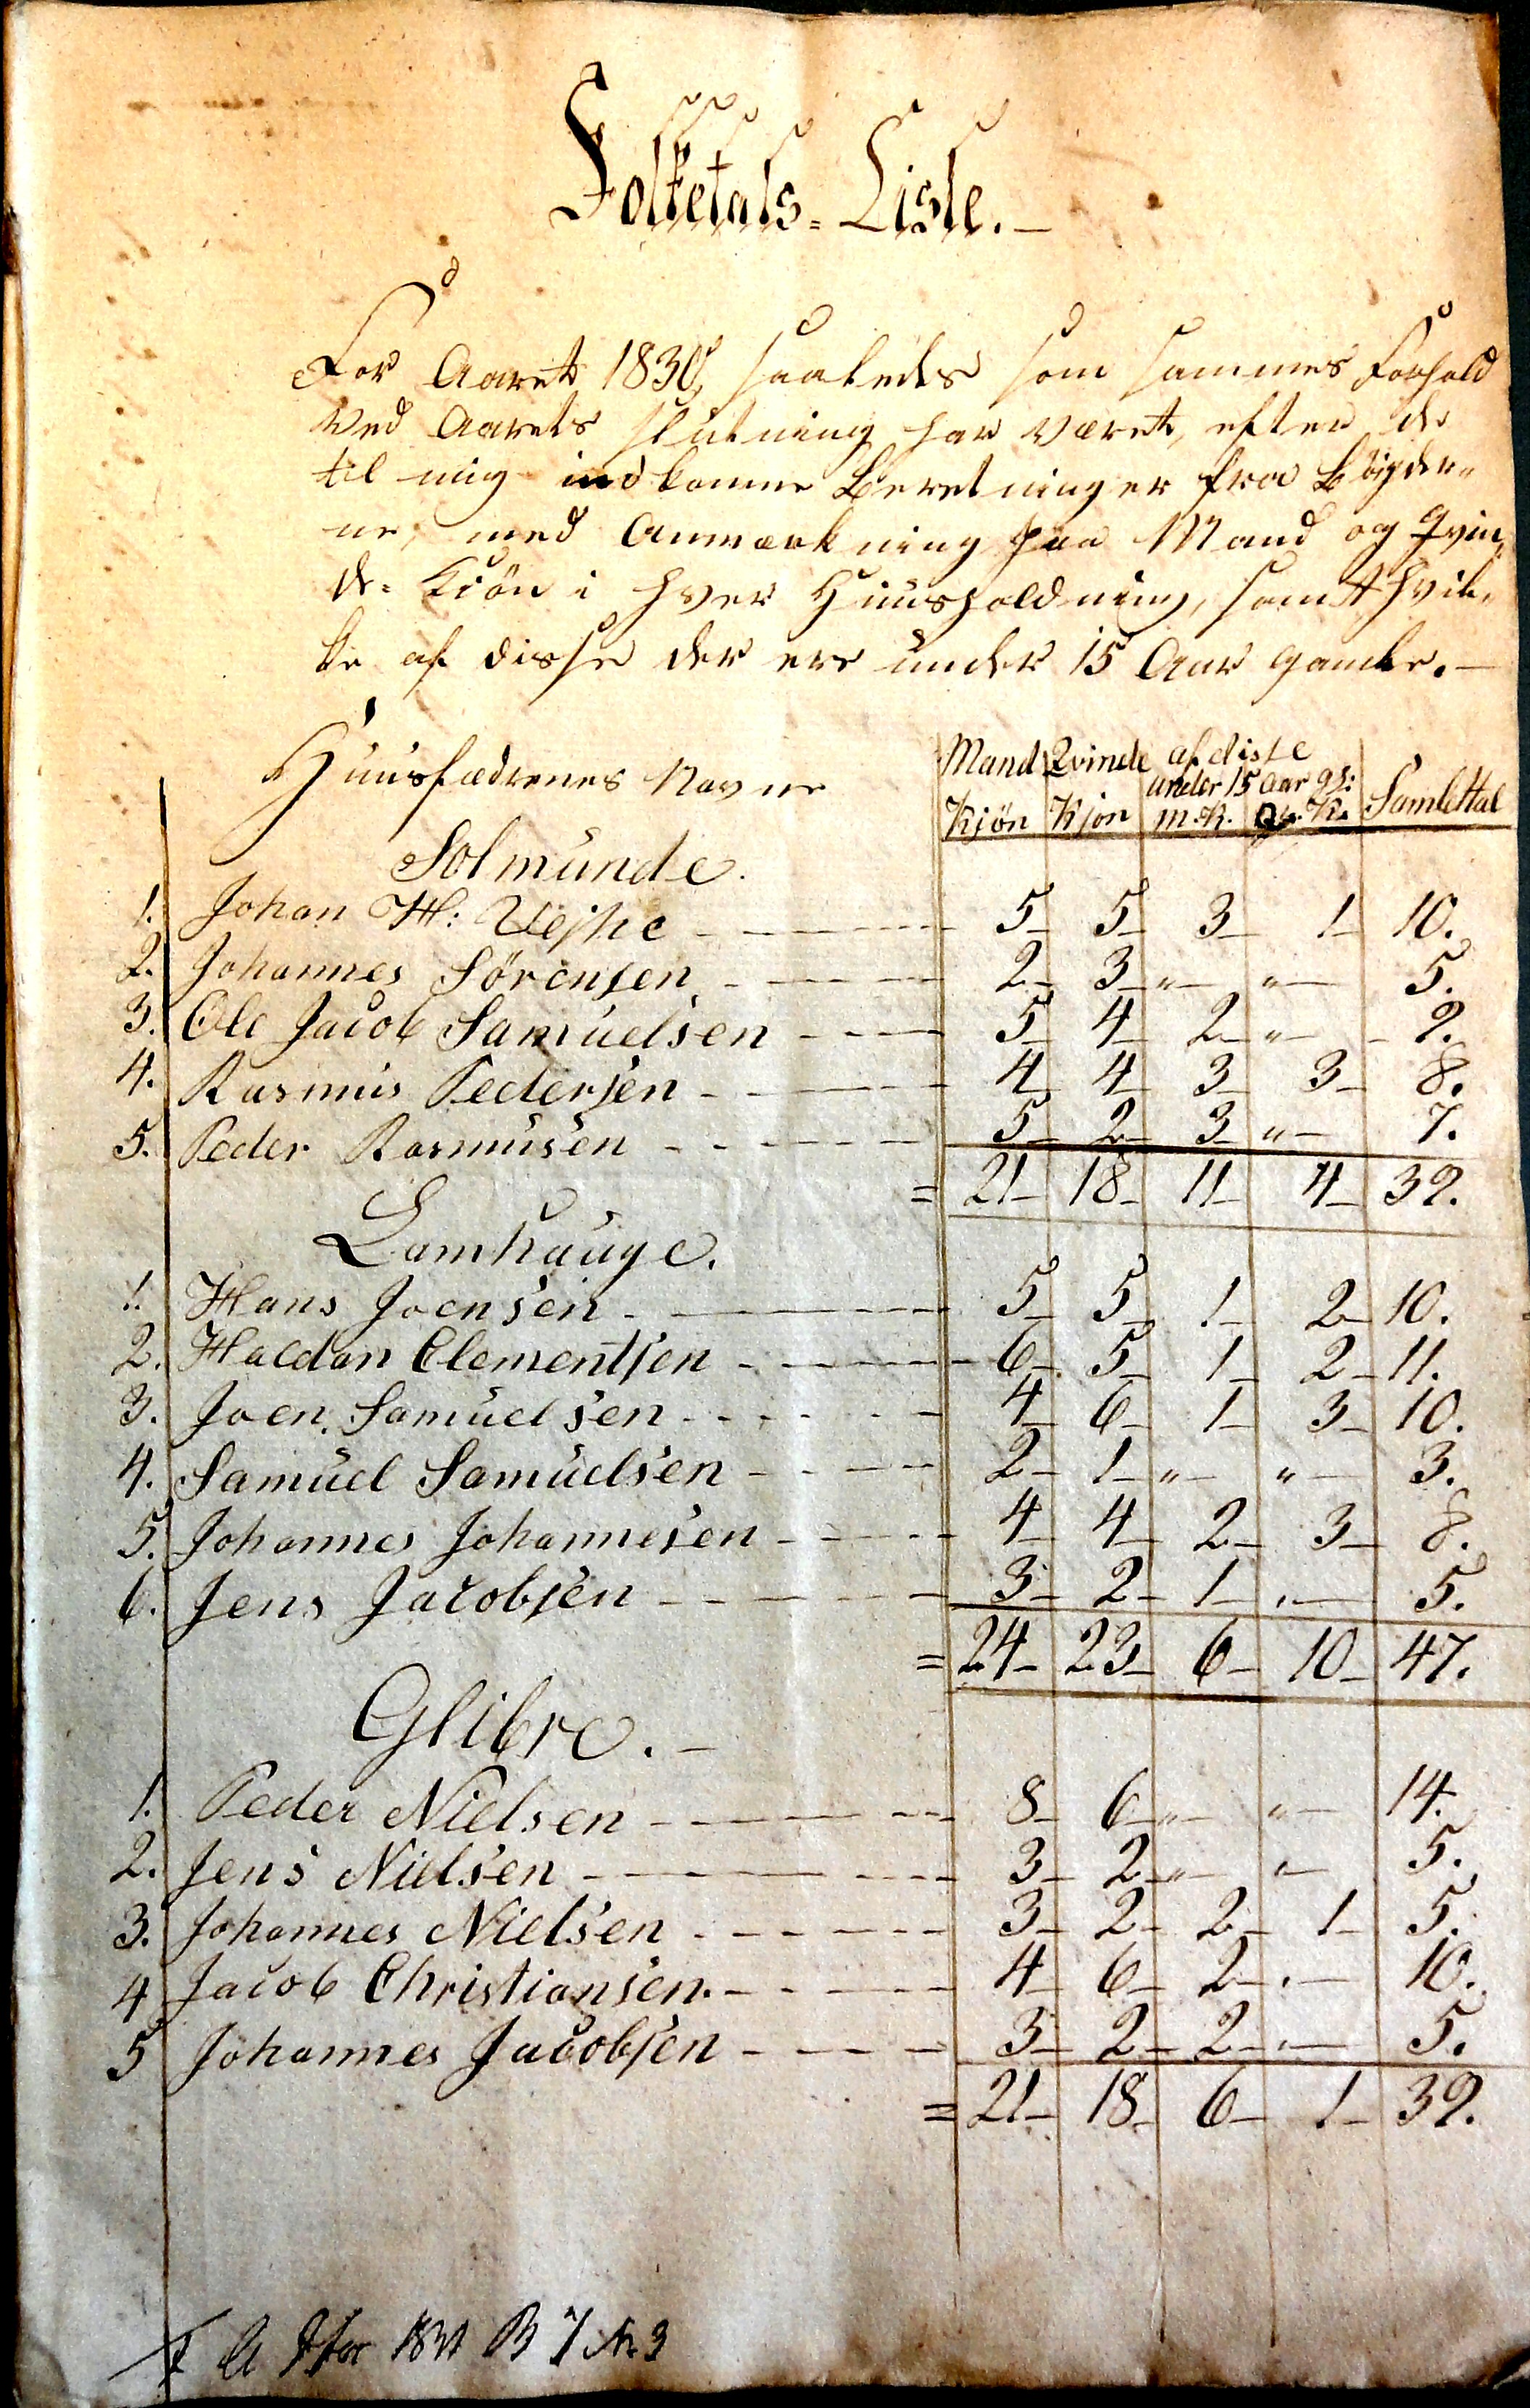 Folketals-Liste.-
For Aaret 1830, saaledes som sammes Forhold
ved Aarets Slutning har været, efter de
til mig indkomne Beretninger fra Bøjder-
ne, med Anmærkning paa Mand og Qvin-
de-Kiön i hver Huusholdning, samt hvil-
ke af disse der ere under 15 Aar gamle.-
Huusfædrenes Navne Mand Kjön Qvinde Kjön af disse under 15 Aar gl: M.K. Qv.K. Samlettal
Solmunde.
1. Johan H: Uejhe - 5- 5- 3- 1- 10.
2. Johannes Sörensen - 2- 3- "- "- 5.
3. Ole Jacob Samuelsen - 5- 4- 2- "- 9.
4. Rasmus Pedersen - 4- 4- 3- 3- 8.
5. Peder Rasmusen - 5- 2- 3- "- 7.
= 21- 18- 11- 4- 39.
Lamhauge.
1. Hans Joensen - 5- 5- 1- 2- 10.
2. Haldan Clementsen - 6- 5- 1- 2- 11.
3. Joen Samuelsen - 4- 6- 1- 3- 10.
4. Samuel Samuelsen - 2- 1- "- "- 3.
5. Johannes Johannesen - 4- 4- 2- 3- 8.
6. Jens Jacobsen - 3- 2- 1- "- 5.
= 24- 23- 6- 10- 47.
Glibre.-
1. Peder Nielsen - 8- 6- "- "- 14.
2. Jens Nielsen - 3- 2- "- "- 5.
3. Johannes Nielsen - 3- 2- 2- 1- 5.
4 Jacob Christiansen. - 4- 6- 2- "- 10.
5 Johannes Jacobsen - 3- 2- 2- "- 5.
= 21- 18- 6- 1- 39.
1831 B 7 № 3